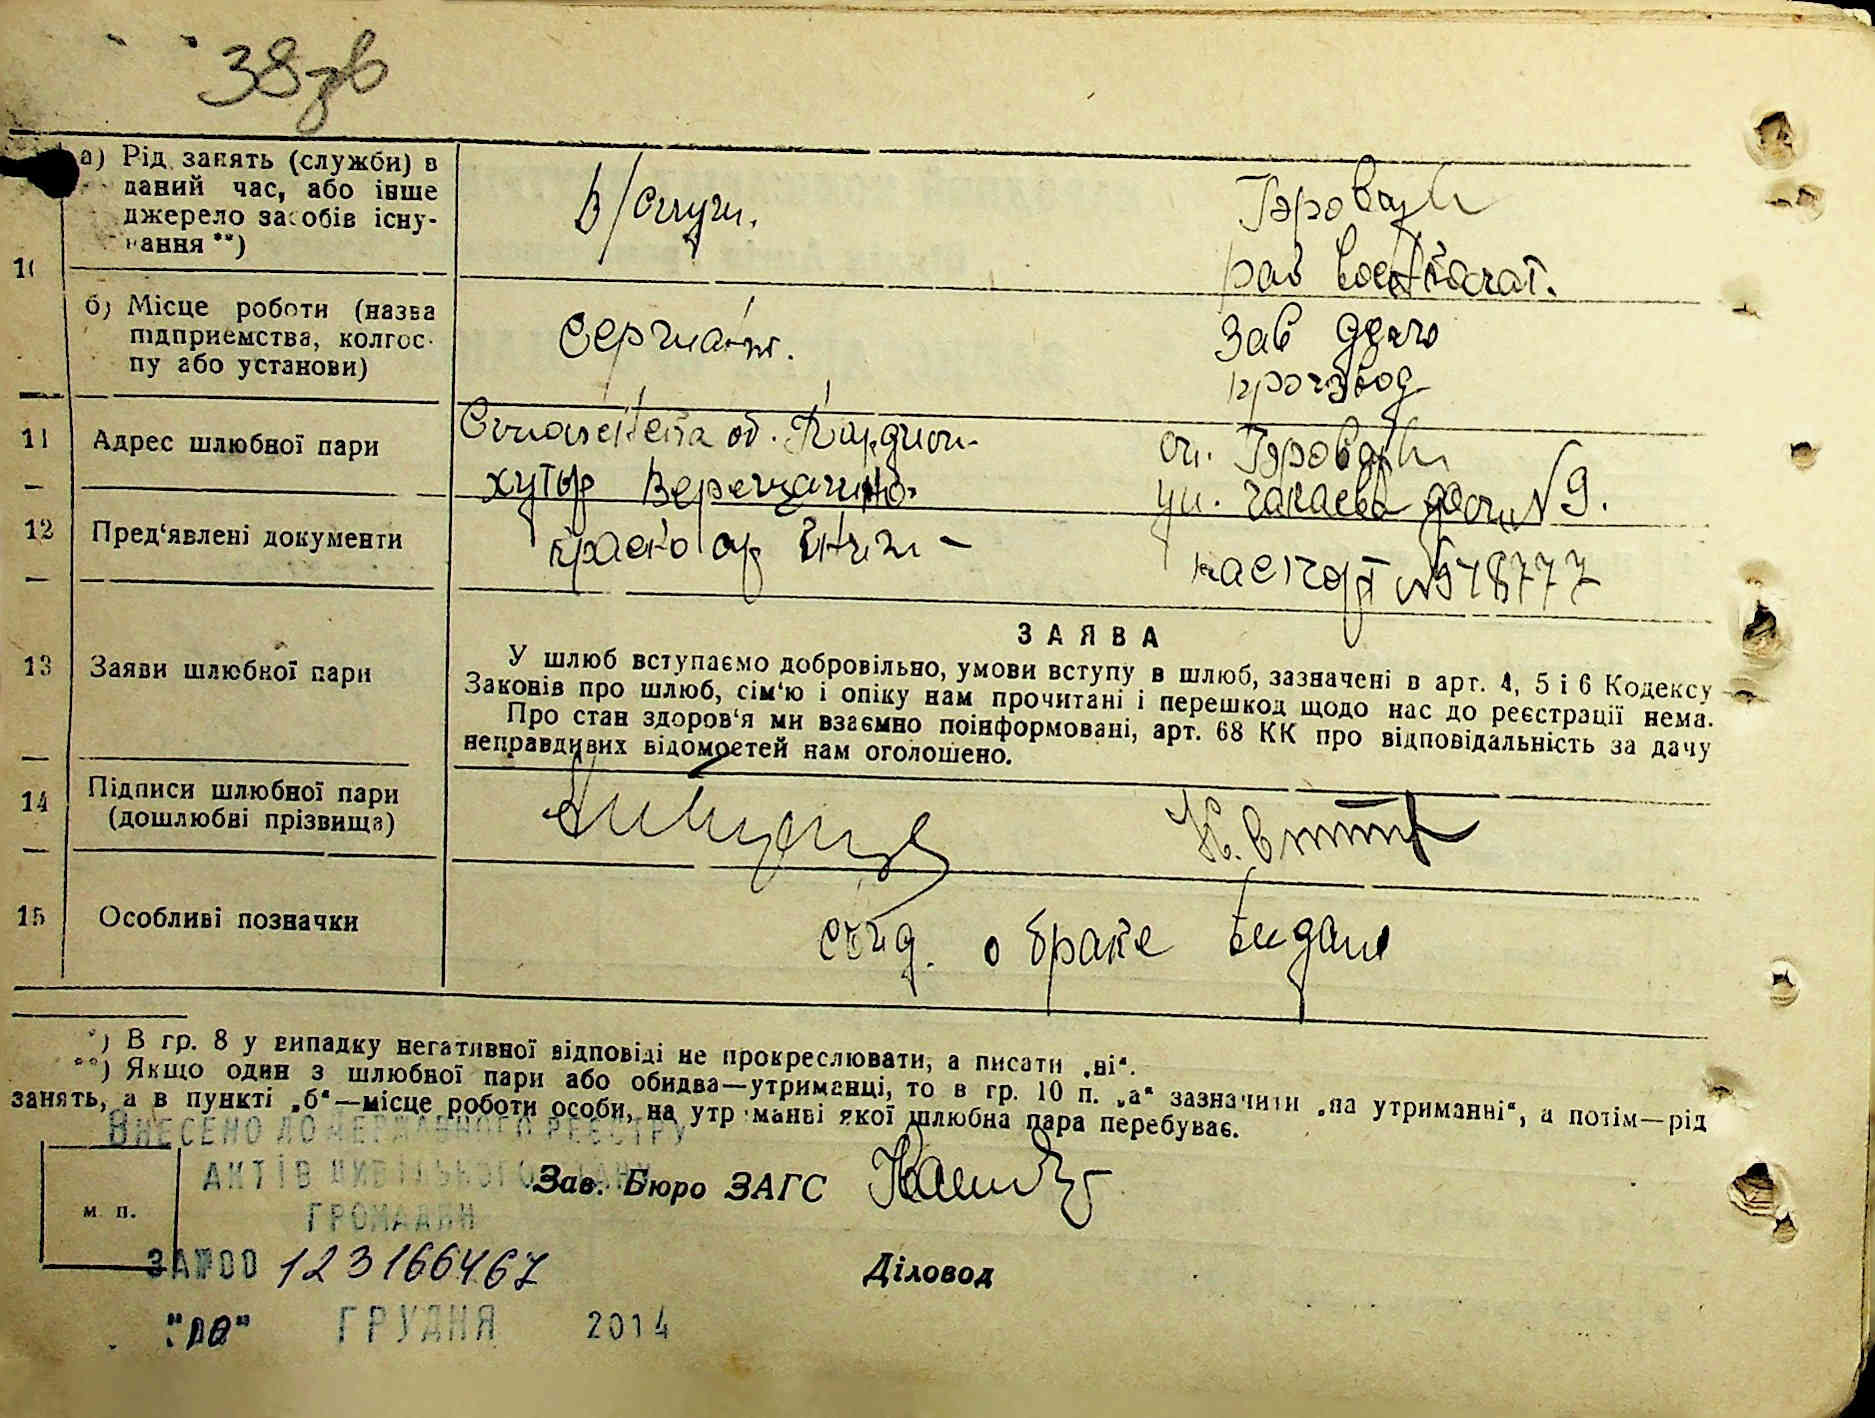 38зв
а) Рід занять (служби) в
даний час, або інше
джерело засобів існу-
вання **)
10
в/служ.
Гэровах
рай военкомат.
б) Місце роботи (назва
підприємства, колгос-
пу або установи)
сержант.
Зав дело
производ
11 Адрес шлюбної пари
об.
хутор
ст. Гэровах
ул. Чапаева дом № 9.
12 Пред'явлені документи
красно ар. книж -
паспорт № 978777
13 Заяви шлюбної пари
ЗАЯВА
У шлюб вступаємо добровільно, умови вступу в шлюб, зазначені в арт. 4, 5 і 6 Кодексу
Законів про шлюб, сім'ю і опіку нам прочитані і перешкод щодо нас до реєстрації нема.
Про стан здоров'я ми взаємно поінформовані, арт. 68 КК про відповідальність за дачу
неправдивих відомостей нам оголошено.
14 Підписи шлюбної пари
(дошлюбні прізвища)
15 Особливі позначки
свид. о браке выдано
*) В гр. 8 у випадку негативної відповіді не прокреслювати, а писати „ні“.
**) Якщо один з шлюбної пари або обидва—утриманці, то в гр. 10 п. „а“ зазначити „на утриманні“, а потім—рід
занять, а в пункті „б“—місце роботи особи, на утриманні якої шлюбна пара перебуває.
ВНЕСЕНО ДО ДЕРЖАВНОГО РЕЄСТРУ
АКТІВ ЦИВІЛЬНОГО СТАНУ
ГРОМАДЯН
Зав. Бюро ЗАГС
м. п.
ЗА №00 123166467
Діловод
"10" ГРУДНЯ 2014